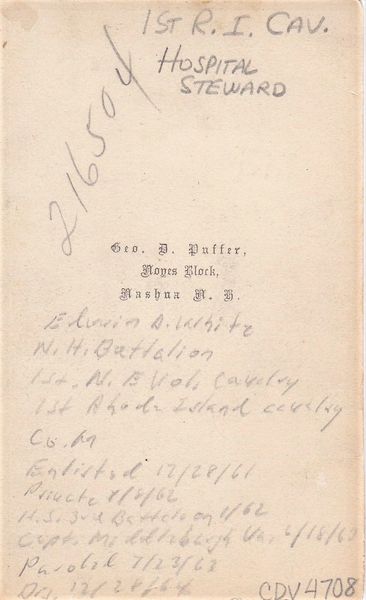 1ST R. I. CAV.
HOSPITAL
STEWARD
216504
Geo. D. Puffer,
Noyes Block,
Nashua N. H.
Edwin A. White
N. H. Battalion
1st. N. E Vol. Cavalry
1st Rhode Island cavalry
Co. M
Enlisted 12/28/61
Private 1/8/62
H.S. 3rd Battalion /62
Capt. Middleburgh Va. 6/18/63
Parold 7/23/63
Dis. 12/28/64
CDV4708